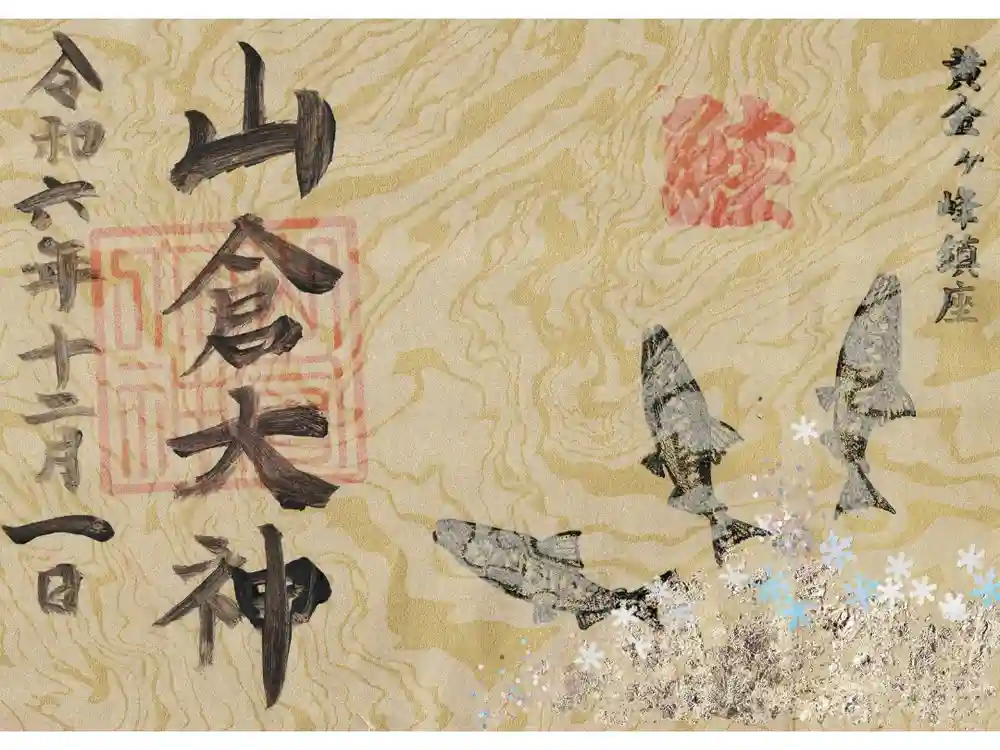 黄金ヶ峰鎮座
山倉大神
令和六年十二月一日